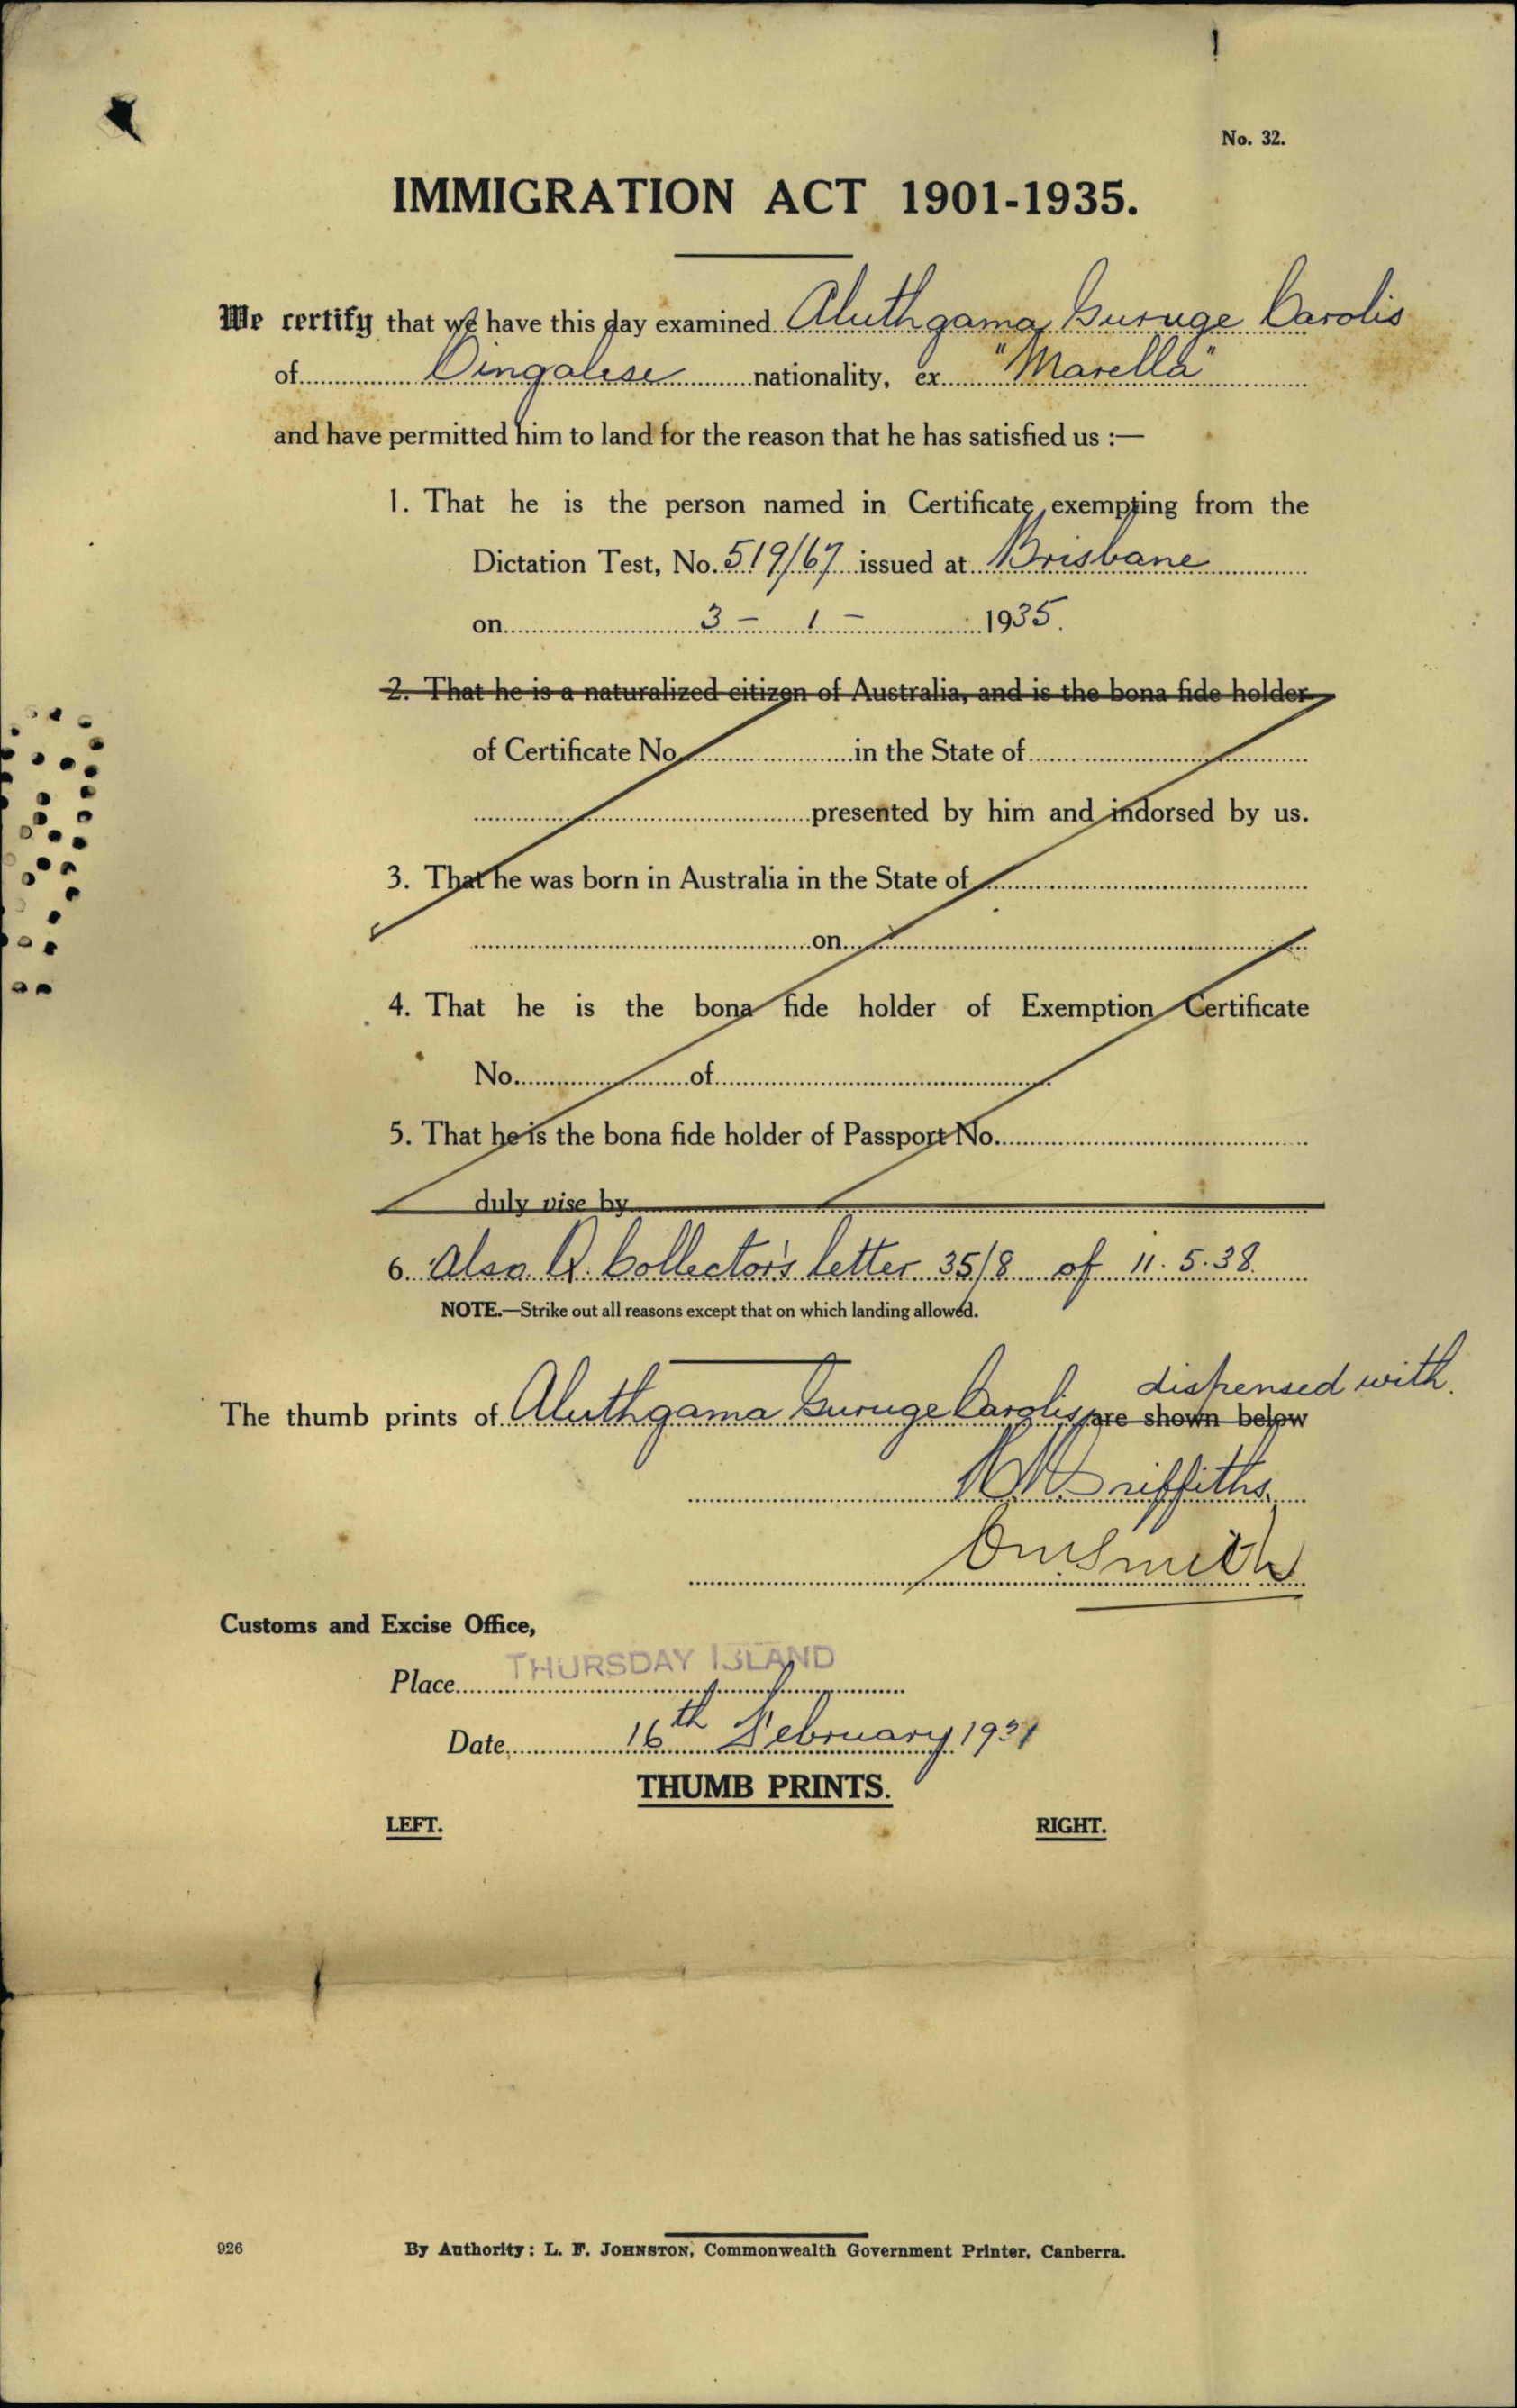 No. 32.
IMMIGRATION ACT 1901-1935.
We certify that we have this day examined Aluthgama Guruge Carolis
of Cingalese nationality, ex "Marella"
and have permitted him to land for the reason that he has satisfied us :—
1. That he is the person named in Certificate exempting from the
Dictation Test, No. 519/67 issued at Brisbane
on 3 - 1 - 1935.
2. That he is a naturalized citizen of Australia, and is the bona fide holder
of Certificate No. in the State of
presented by him and indorsed by us.
3. That he was born in Australia in the State of
on
4. That he is the bona fide holder of Exemption Certificate
No. of
5. That he is the bona fide holder of Passport No.
duly vise by
6. Also Q. Collector's letter 35/8 of 11.5.38.
NOTE.—Strike out all reasons except that on which landing allowed.
dispensed with.
The thumb prints of Aluthgama Guruge Carolis are shown below
Griffiths.
Smith
Customs and Excise Office,
Place THURSDAY ISLAND
Date 16th February 193
THUMB PRINTS.
LEFT. RIGHT.
926 By Authority: L. F. JOHNSTON, Commonwealth Government Printer, Canberra.